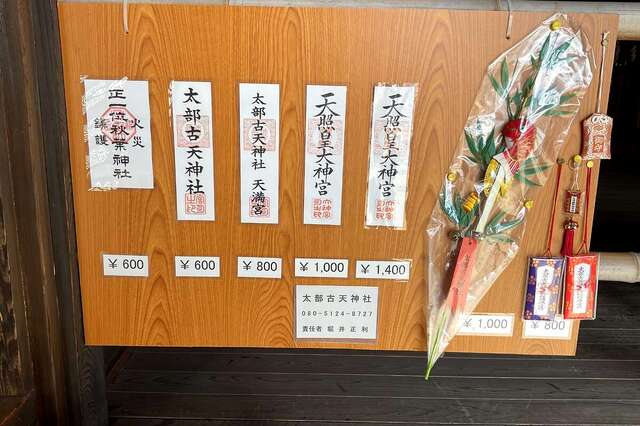 正一位秋葉神社
火災
鎮護
太部古天神社
太部古天神社 天満宮
天照皇大神宮
天照皇大神宮
¥600
¥600
¥800
¥1,000
¥1,400
¥1,000
¥800
太部古天神社
080-5124-8727
責任者 堀井正利